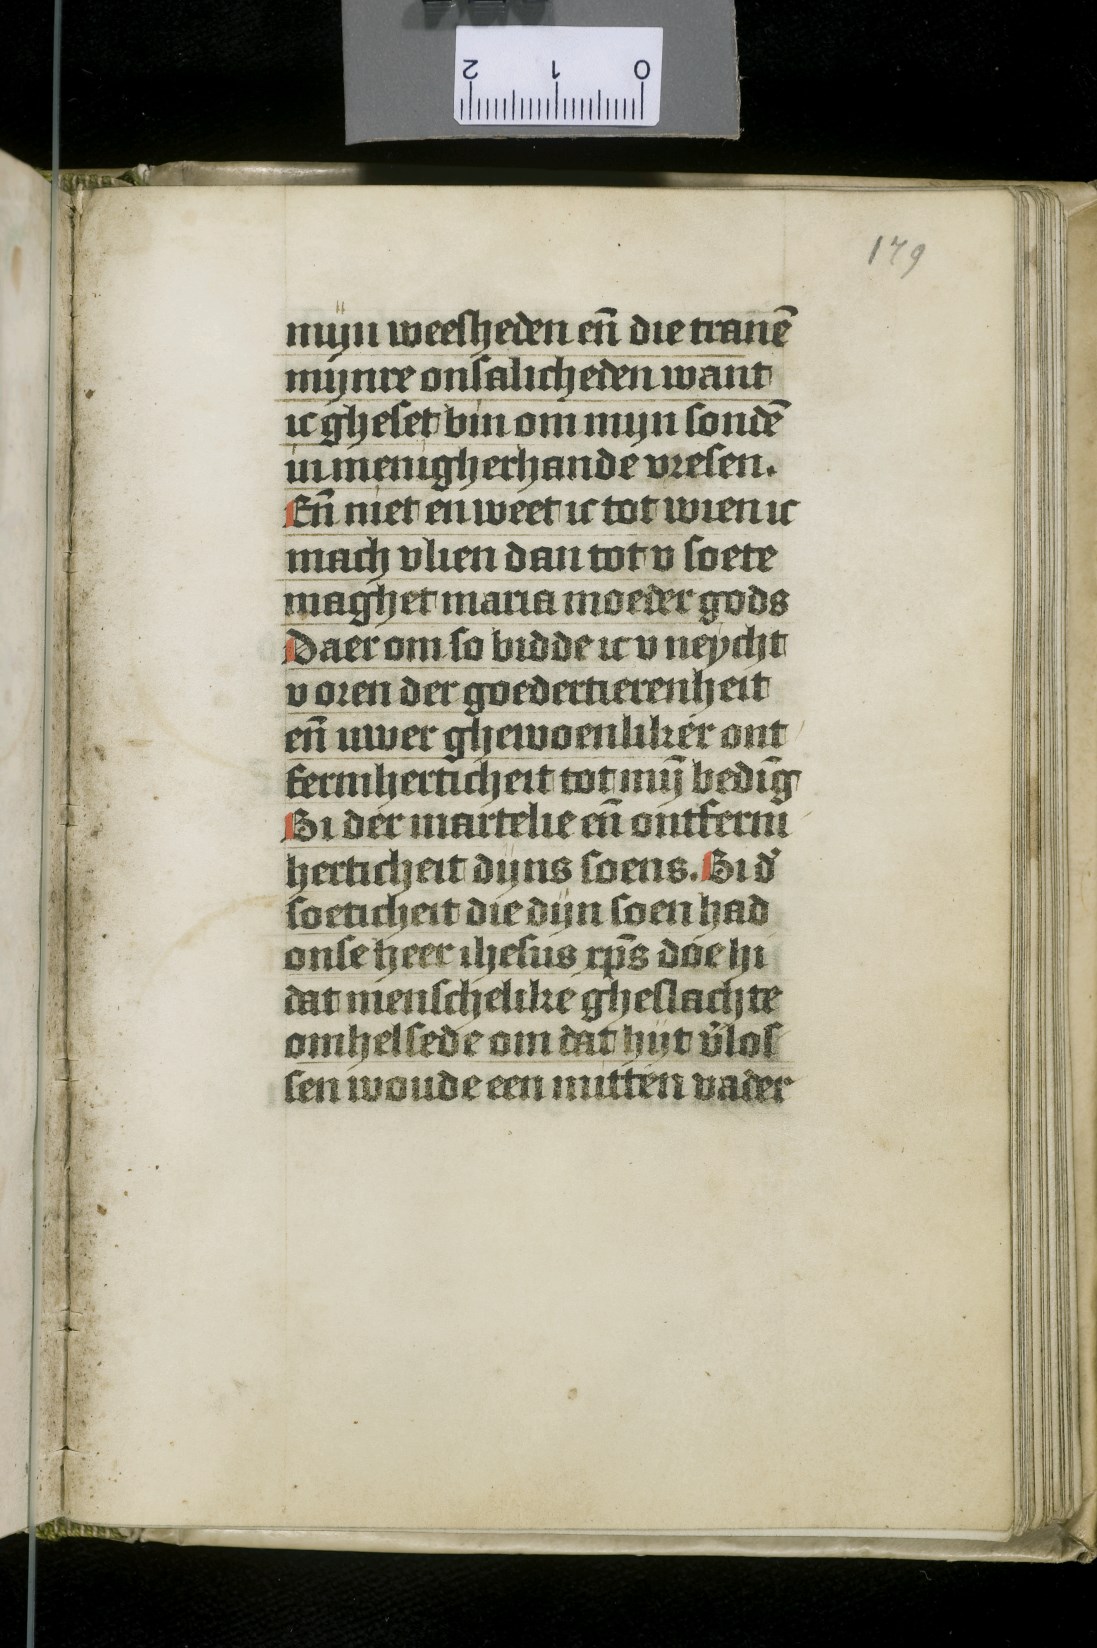 2 1 0
179
mijn weesheden en̄ die tranē
mijnre onsalicheden want
ic gheset bin om mijn sondē
in menigherhande vresen.
En̄ niet en weet ic tot wien ic
mach vlien dan tot v soete
maghet maria moeder gods
Daer om so bidde ic v neycht
v oren der goedertierenheit
en̄ uwer ghewoenliker ont
fermherticheit tot mȳ bedīg
Bi der martelie en̄ ontferm
herticheit dijns soens. Bi d̛
soeticheit die dijn soen had
onse heer ihesus xp̄s doe hi
dat menschelike gheslachte
omhelsede om dat hijt v̛los
sen woude een mitten vader